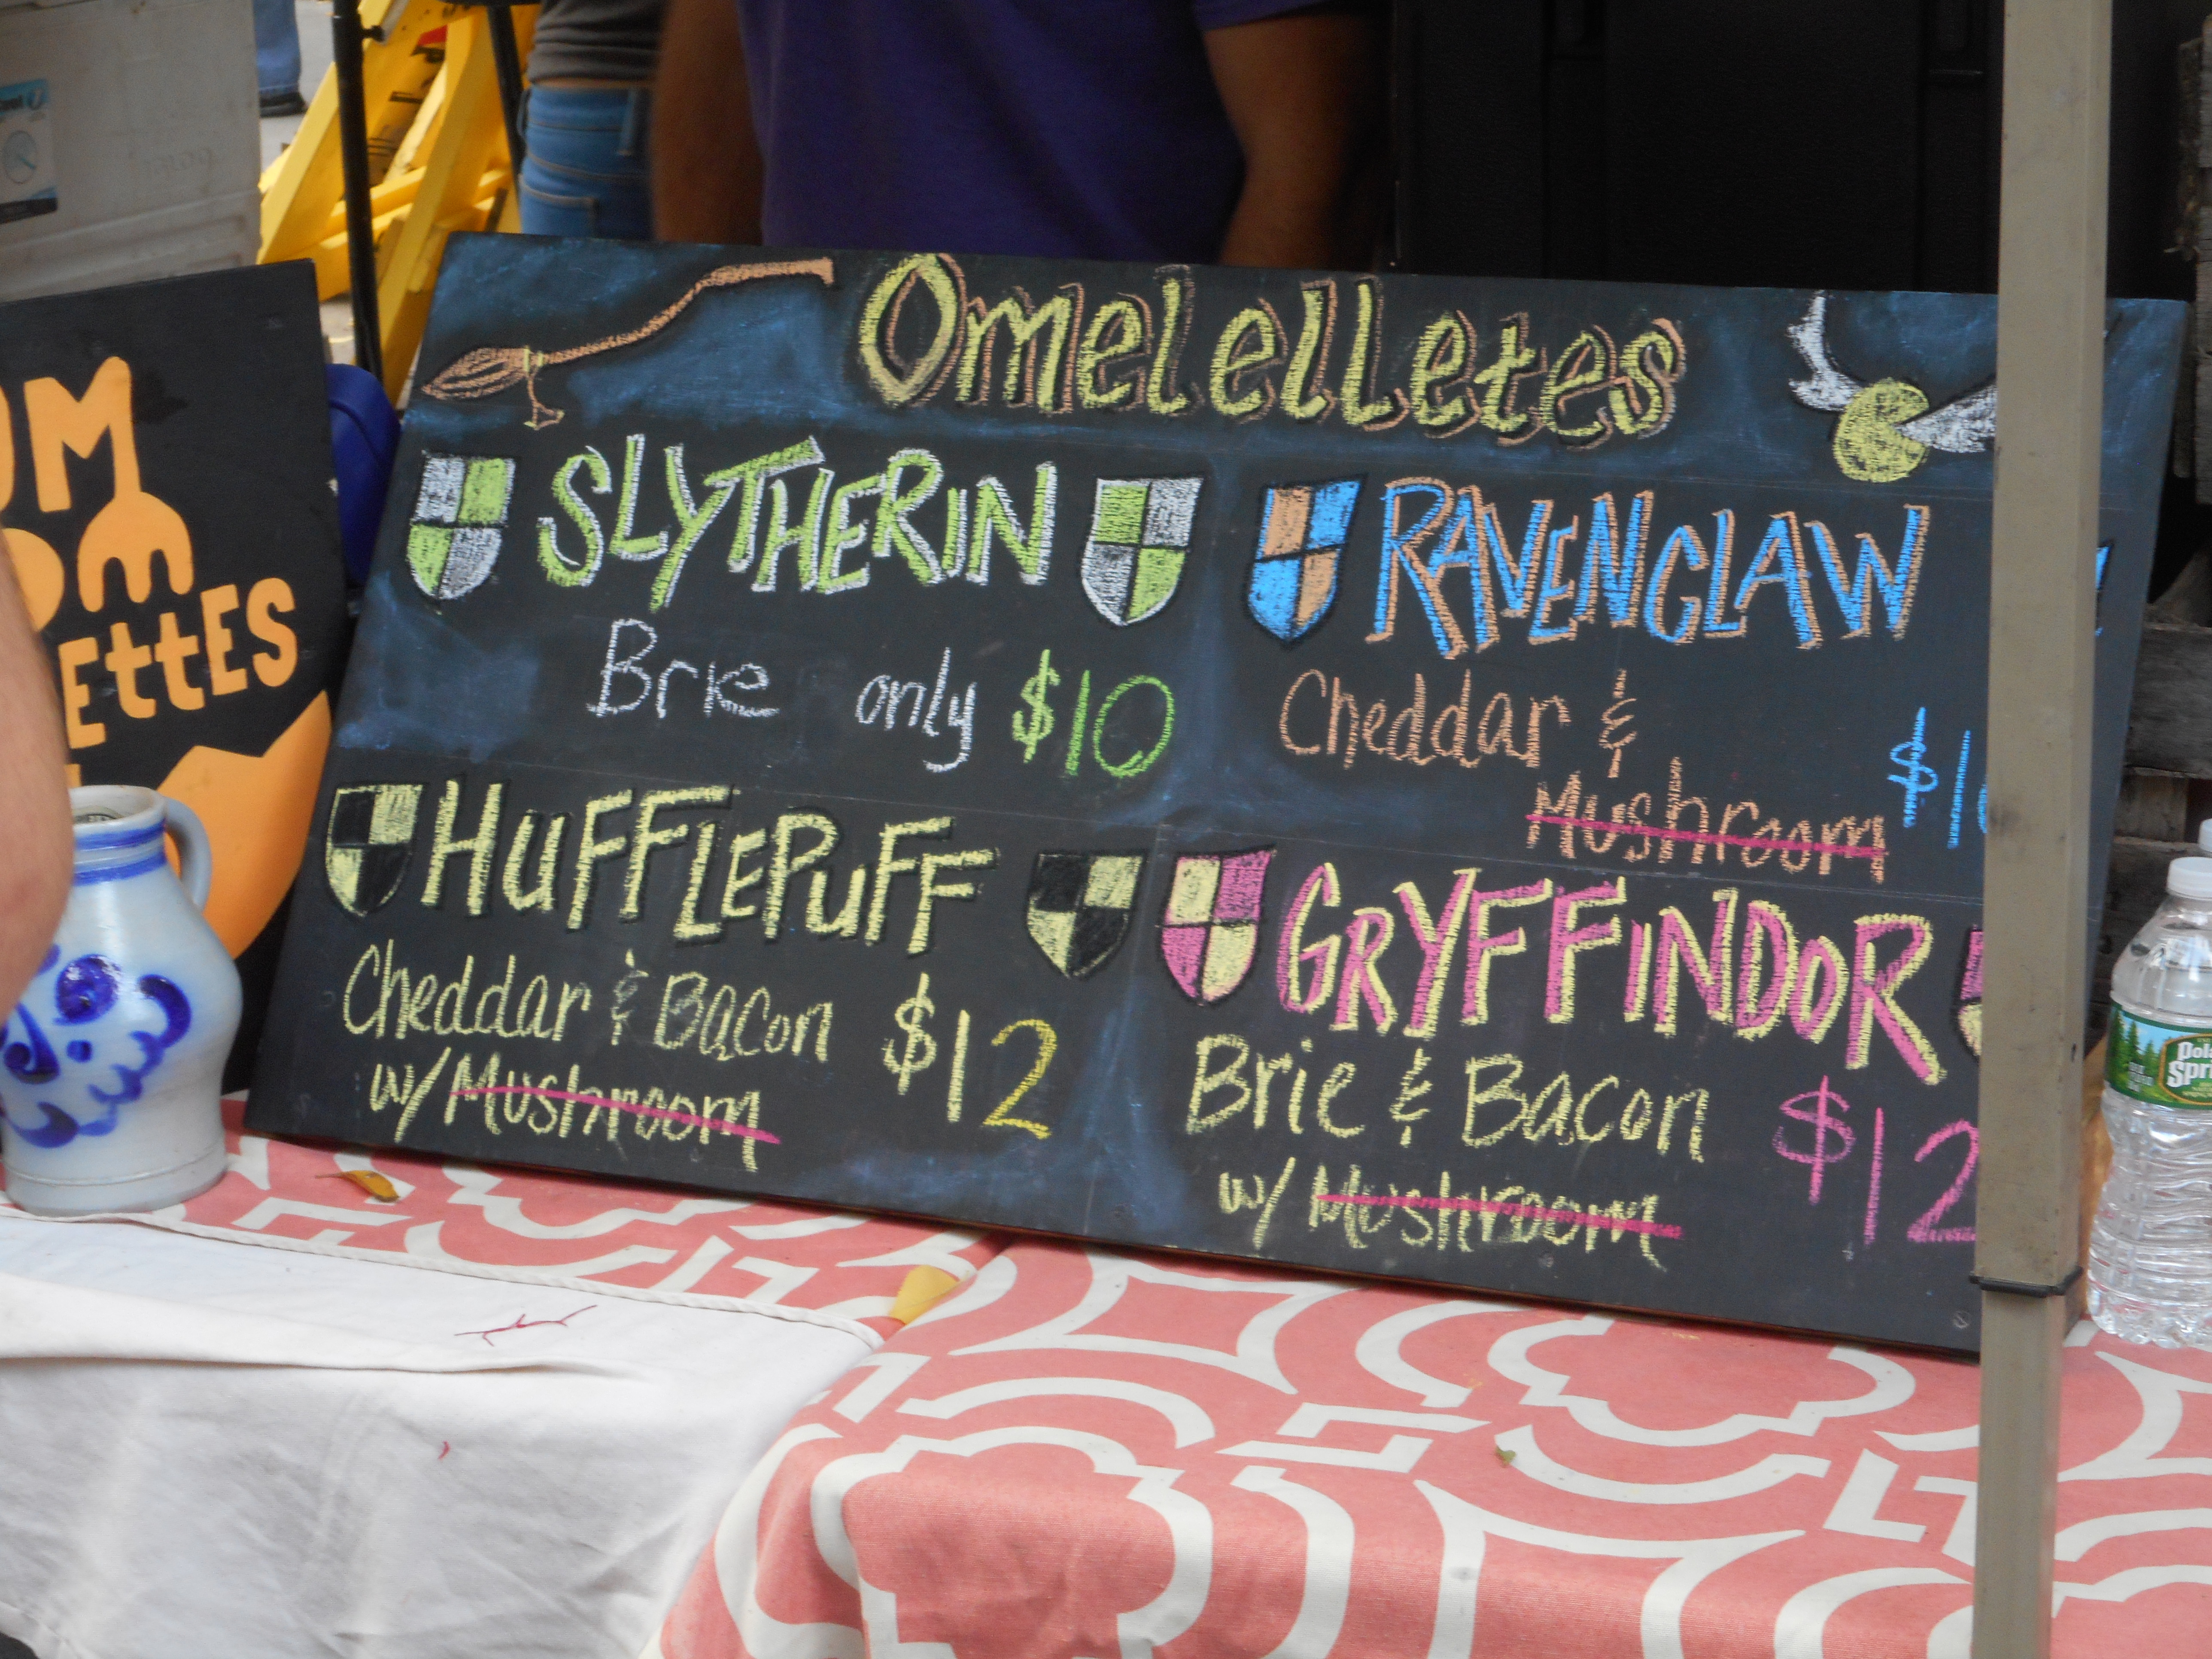 Omelelletes
SLYTHERIN
Brie only $10
RAVENCLAW
Cheddar &
Mushroom
HUFFLEPUFF
Cheddar & Bacon
w/ Mushroom
$12
GRYFFINDOR
Brie & Bacon
w/ Mushroom
$12